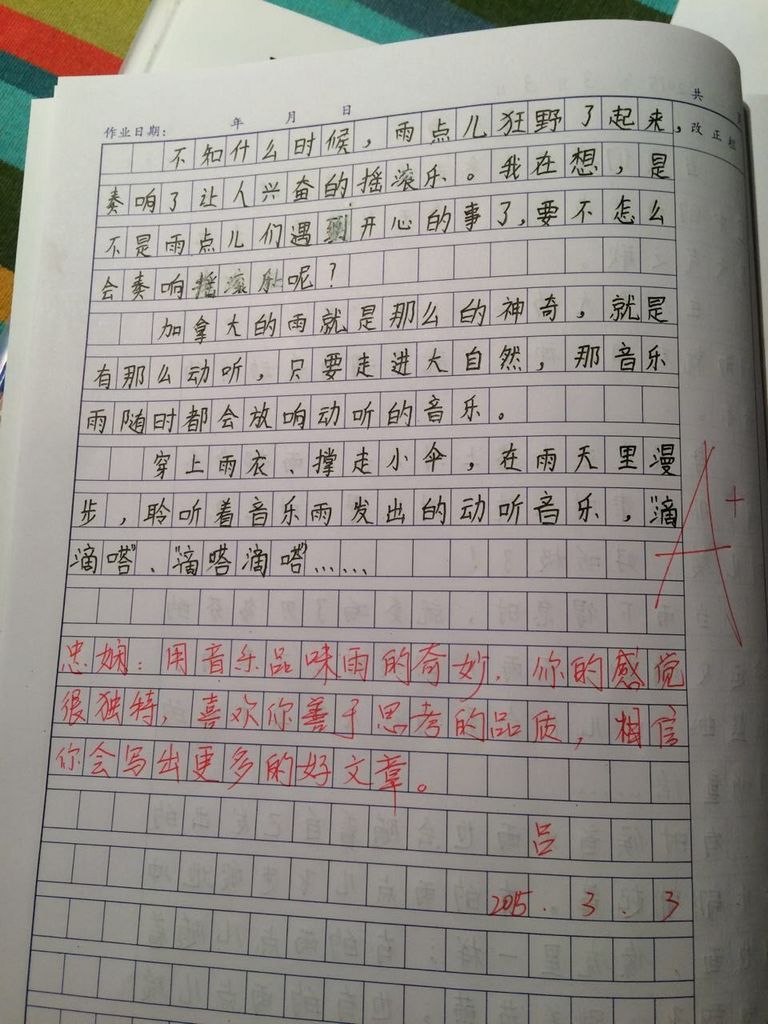 共
作业日期： 年 月 日
改正
不知什么时候，雨点儿狂野了起来，
奏响了让人兴奋的摇滚乐。我在想，是
不是雨点儿们遇到开心的事了，要不怎么
会奏响摇滚乐呢？
加拿大的雨就是那么的神奇，就是
有那么动听，只要走进大自然，那音乐
雨随时都会放响动听的音乐。
穿上雨衣、撑走小伞，在雨天里漫
步，聆听着音乐雨发出的动听音乐，“滴
滴嗒”、“滴嗒滴嗒”……
A+
忠娴：用音乐品味雨的奇妙，你的感觉
很独特，喜欢你善于思考的品质，相信
你会写出更多的好文章。
吕
2015．3．3